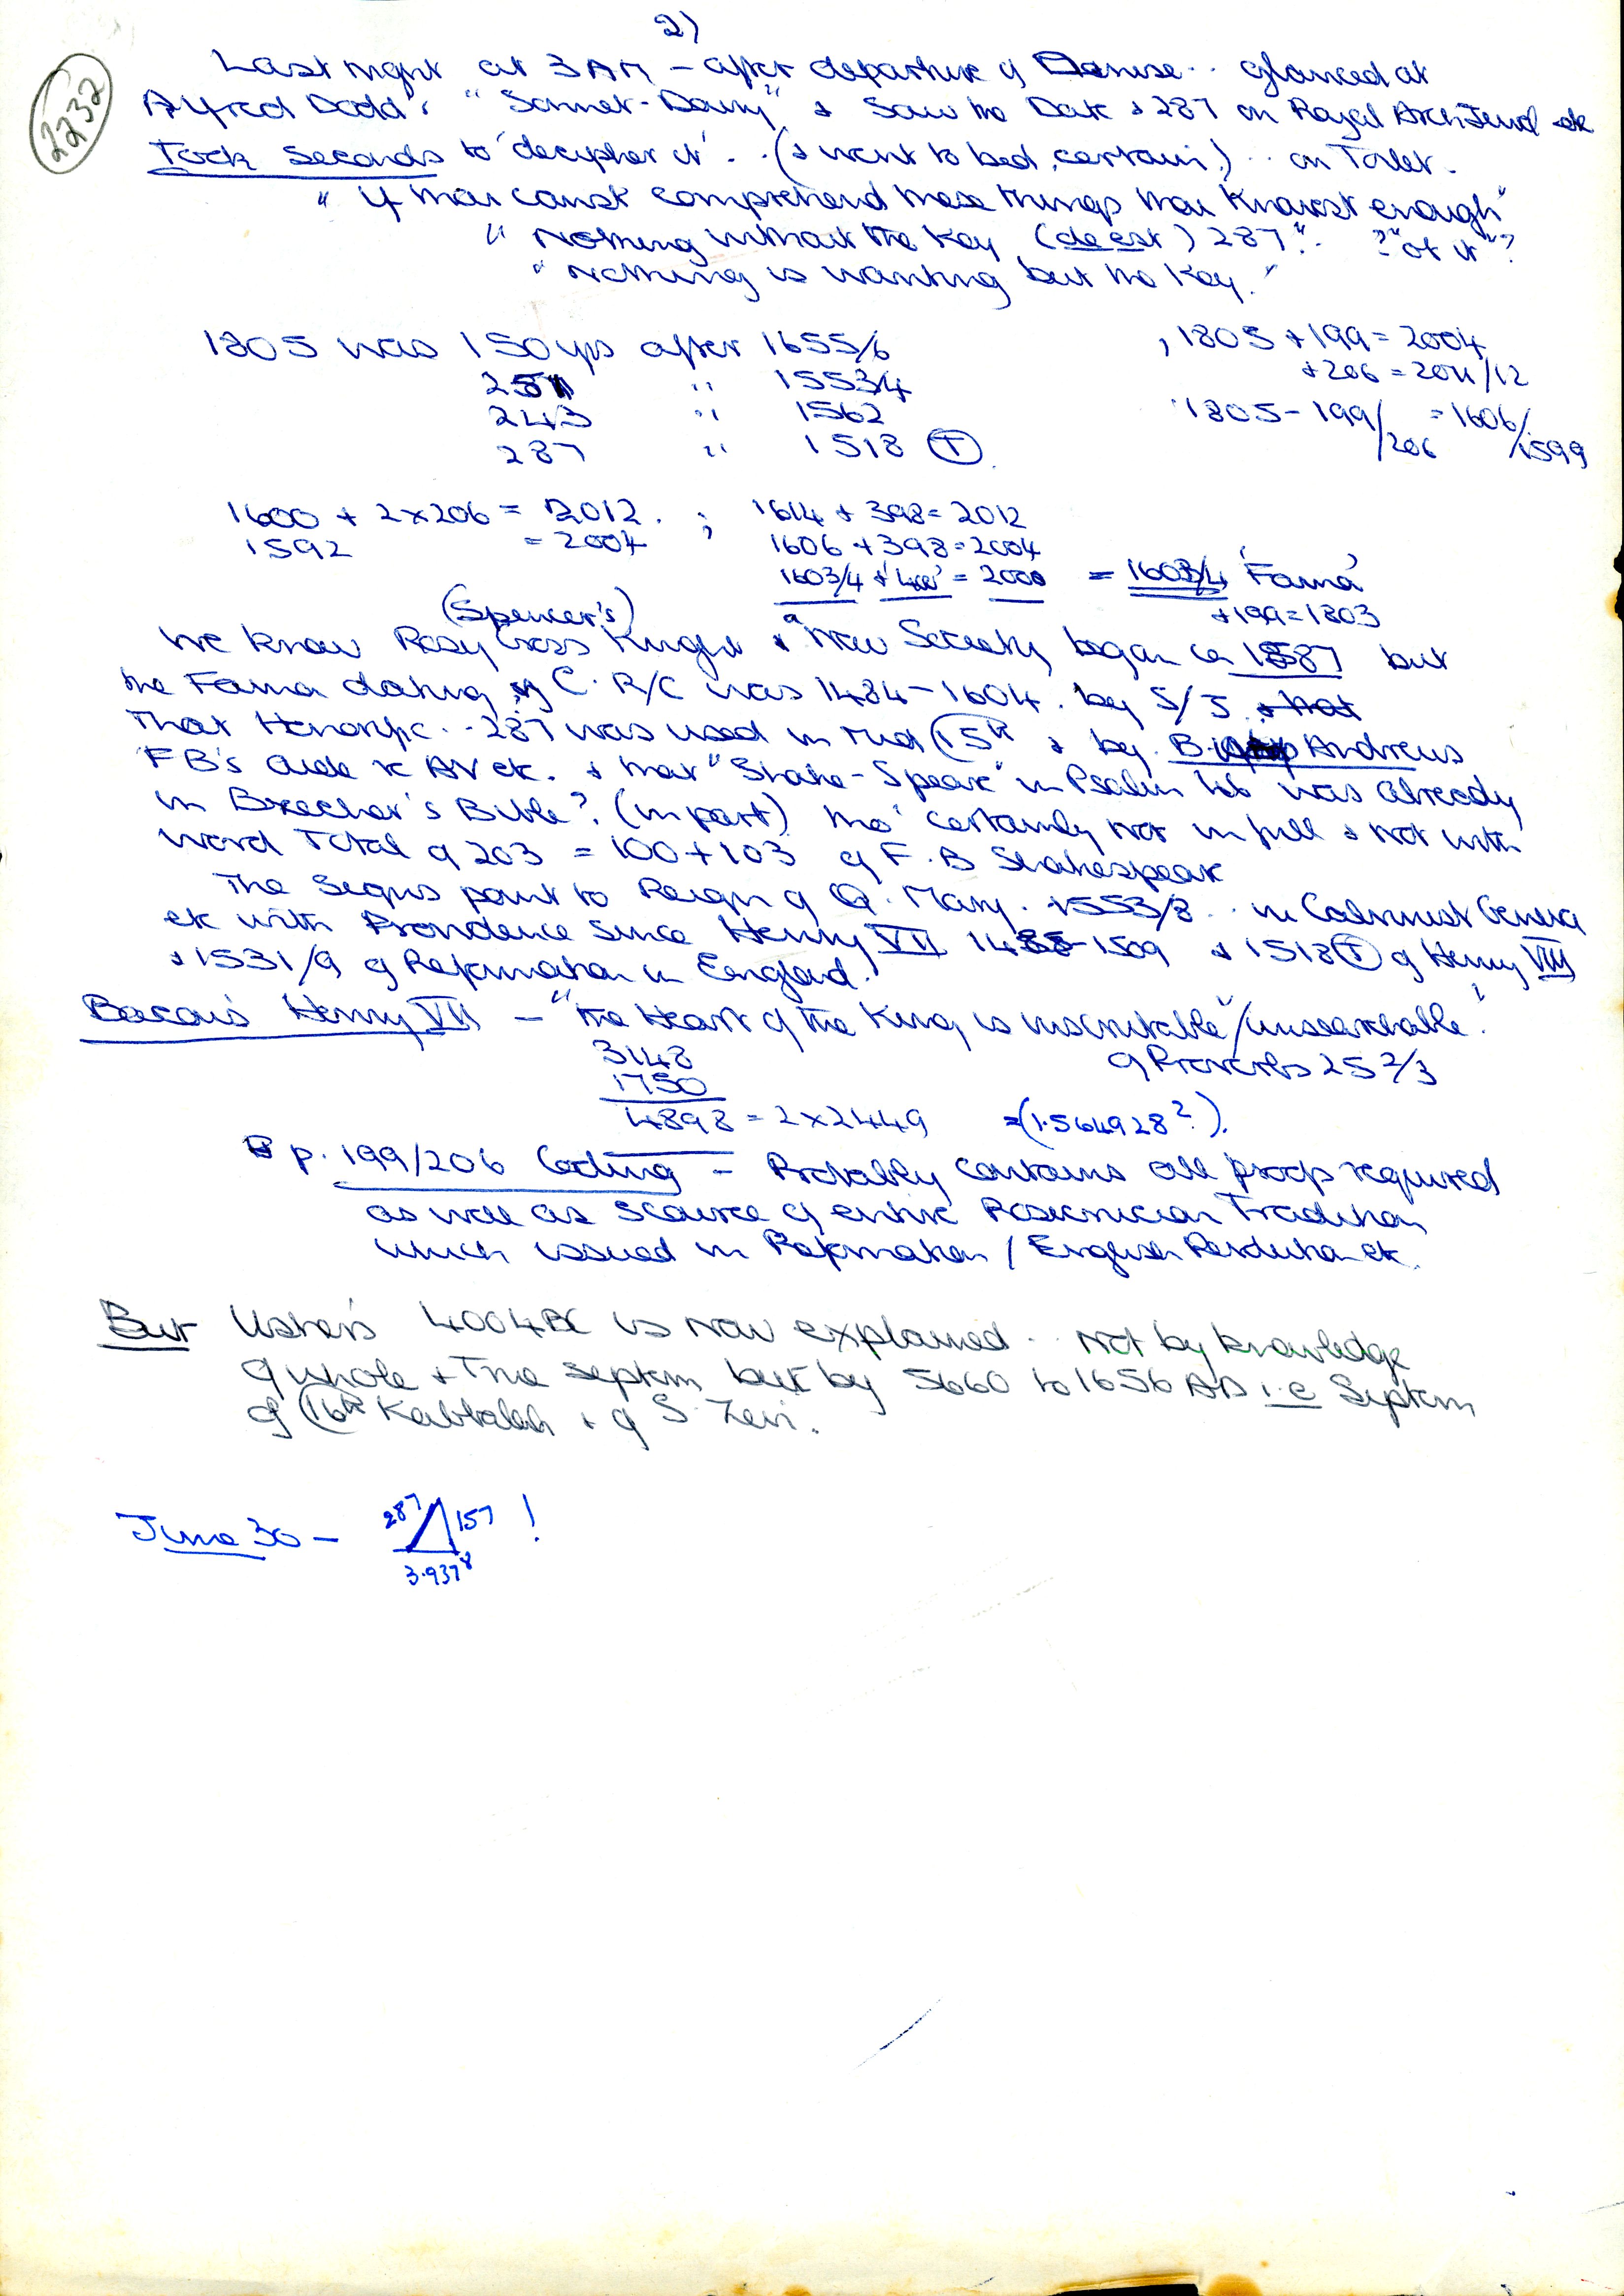 2)
2232
Last night at 3 AM - after departure of Denise .. glanced at
Alfred Dodd's "Sonnet-Diary" & saw the Date & 287 on Royal Arch Jewel etc
Took seconds to 'decipher it' .. (& went to bed, certain!) .. on Toilet.
"If thou canst comprehend these things thou knowest enough"
"Nothing without the Key (deest) 287". ?"of it"?
"Nothing is wanting but the Key."
1805 was 150 yrs after 1655/6
, 1805 + 199 = 2004
" 1553/4
+ 206 = 2011/12
243 " 1562
1805 - 199/206 = 1606/1599
287 " 1518 (T).
1600 + 2x206 = 2012. ; 1614 + 398 = 2012
1592 = 2004 1606 + 398 = 2004
1603/4 + '400' = 2000 = 1603/4 'Fama'
+199 = 1803
(Spencer's)
We know Rosy Cross Knight & "New Society began ca 1587 but
the Fama dating of C.R/C was 1484-1604. by S/J. & that
That 287 was used in mid (15th & by Andrews
FB's aide re AV etc. & that "Shake-Speare" in Psalm 46 was already
in Breecher's Bible? (in part) tho' certainly not in full & not with
word Total of 203 = 100 + 103 of F.B Shakespeare
The Signs point to Reign of Q. Mary. 1553/8 .. in Calvinist Geneva
etc with Providence since Henry VII 1485-1509 & 1518 (T) of Henry VIII
& 1531/9 of Reformation in England.
Bacon's Henry VII - "the Heart of the King is inscrutable"/unsearchable!
3148 of Proverbs 25 2/3
1750
4898 = 2x2449 =(1.564928²).
p. 199/206 Coding - Probably contains all proofs required
as well as source of entire Rosicrucian Tradition
which issued in Reformation / English Revolution etc.
But Usher's 4004 BC is now explained .. not by knowledge
of whole & True Septem but by 5660 to 1656 AD i.e Septem
of (16th Kabbalah & of S. Zevi.
June 30 - 287 157 !
3.937⁸